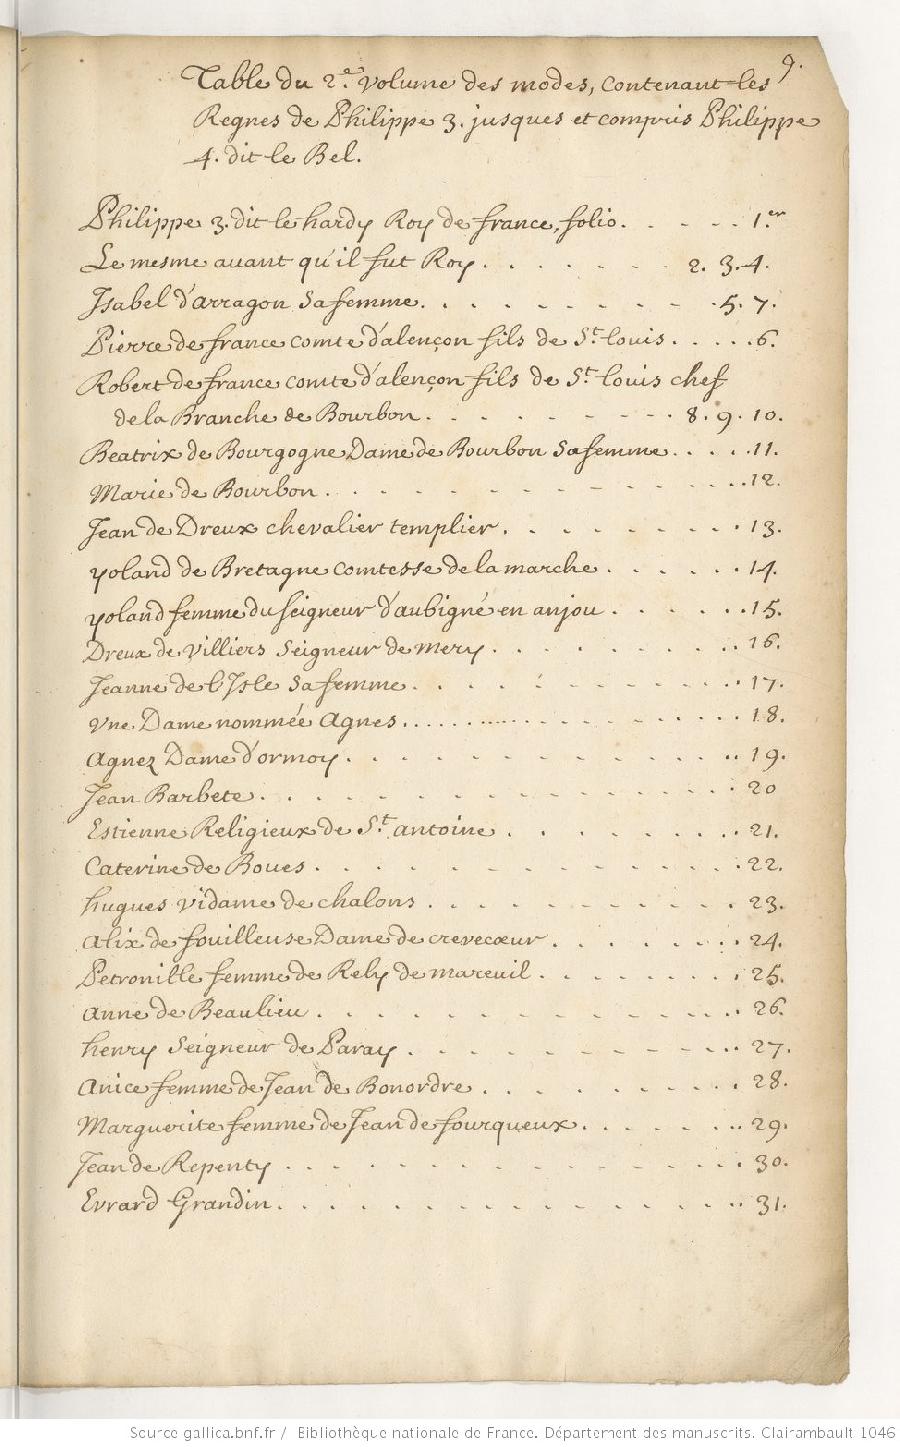 9.
Table du 2.e volume des modes, contenant les
Regnes de Philippe 3. jusques et compris Philippe
4. dit le Bel.
Philippe 3. dit le hardy Roy de france, folio. . . . . . 1.er
Le mesme auant qu'il fut Roy . . . . . . . 2. 3. 4.
Isabel d'arragon sa femme. . . . . . . . . 5. 7.
Pierre de france comte d'alençon fils de St. louis . . . . . 6.
Robert de france comte d'alençon fils de St. louis chef
de la Branche de Bourbon. . . . . . . . 8. 9. 10.
Beatrix de Bourgogne Dame de Bourbon sa femme. . . . . 11.
Marie de Bourbon . . . . . . . . . . . 12.
Jean de Dreux chevalier templier . . . . . . . . 13.
yoland de Bretagne comtesse de la marche . . . . . . 14.
yoland femme du seigneur d'aubigné en anjou . . . . . . 15.
Dreux de Villiers Seigneur de mery . . . . . . . . 16.
Jeanne de l'Isle sa femme . . . . . . . . . . 17.
Vne Dame nommée Agnes . . . . . . . . . . 18.
Agnez Dame d'ormoy . . . . . . . . . . . 19.
Jean Barbete . . . . . . . . . . . . . 20
Estienne Religieux de St. antoine . . . . . . . . 21.
Caterine de Boues . . . . . . . . . . . . 22.
hugues vidame de chalons . . . . . . . . . 23.
alix de fouilleuse Dame de crevecœur . . . . . . . 24.
Petronille femme de Rely de mareuil . . . . . . . 25.
anne de Beaulieu . . . . . . . . . . . . 26.
henry Seigneur de Paray . . . . . . . . . . 27.
anice femme de Jean de Bonordre . . . . . . . . 28.
Marguerite femme de Jean de fourqueux . . . . . . . 29.
Jean de Repenty . . . . . . . . . . . . 30.
Evrard Grandin . . . . . . . . . . . . . 31.
Source gallica.bnf.fr / Bibliothèque nationale de France. Département des manuscrits. Clairambault 1046